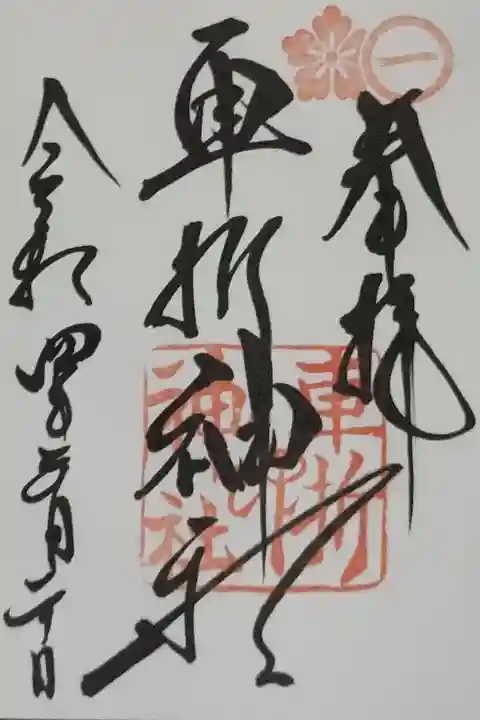 一
奉拝
車折神社
車折
神社
令和四年五月 日